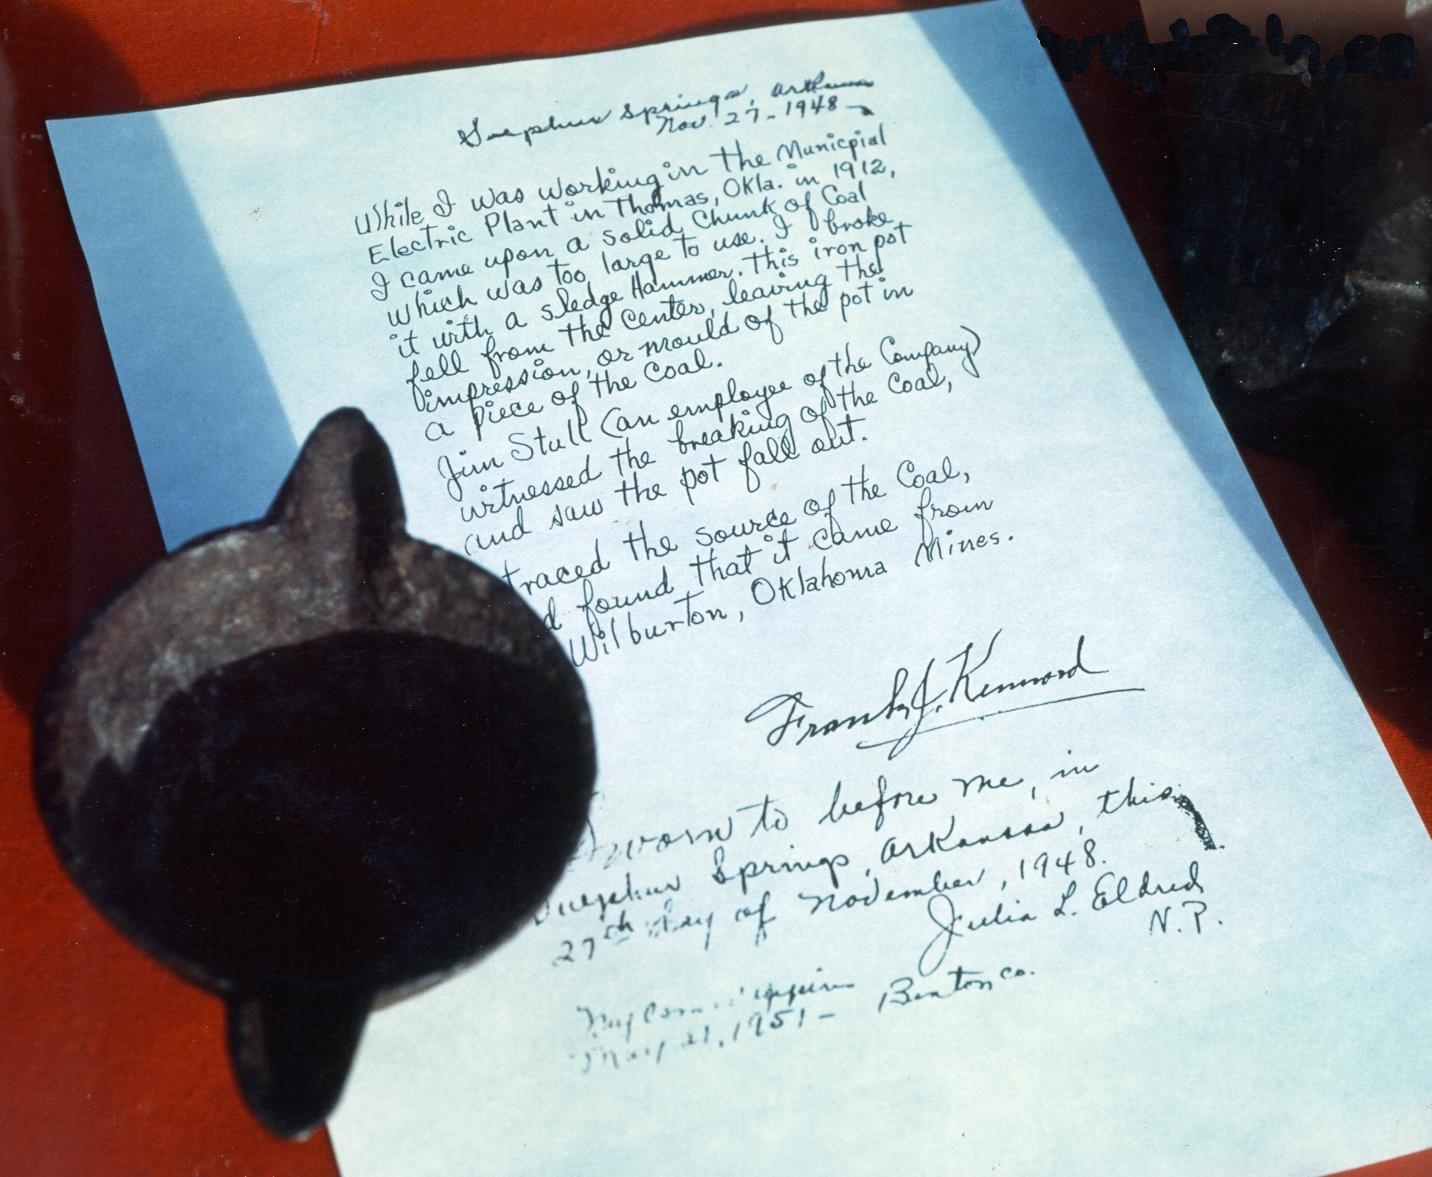 Sulphur Springs, Arkansas
Nov. 27-1948
While I was working in the Municpial
Electric Plant in Thomas, Okla. in 1912,
I came upon a solid Chunk of Coal
which was too large to use. I broke
it with a sledge Hammer. This iron pot
fell from the center, leaving the
impression, or mould of the pot in
a piece of the coal.
Jim Stull (an employee of the Company)
witnessed the breaking of the coal,
and saw the pot fall out.
traced the source of the Coal,
found that it came from
Wilburton, Oklahoma Mines.
Frank J. Kennard
Sworn to before me, in
Sulphur Springs, Arkansas, this
27th day of November, 1948.
Julia L. Eldred
N.P.
My Com expires Benton Co.
May 21, 1951-